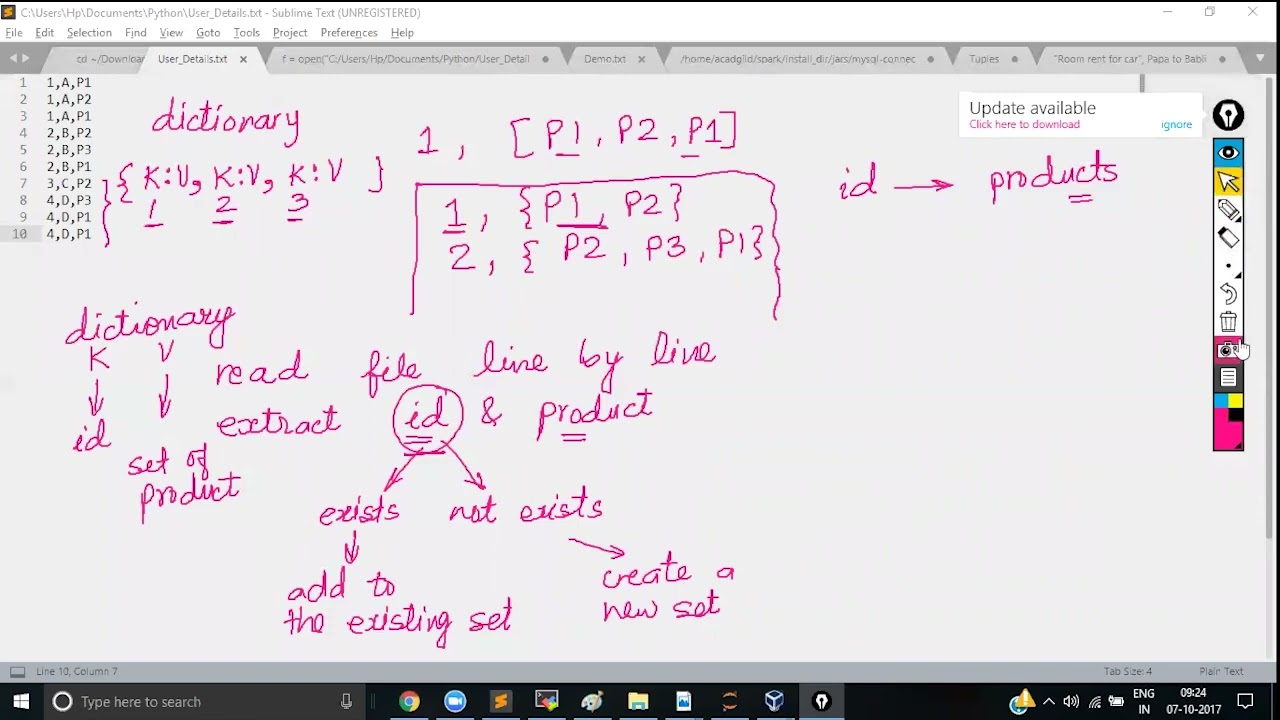 C:\Users\Hp\Documents\Python\User_Details.txt - Sublime Text (UNREGISTERED)
File Edit Selection Find View Goto Tools Project Preferences Help
cd ~/Downloa User_Details.txt f = open("C:/Users/Hp/Documents/Python/User_Detail Demo.txt /home/acadgild/spark/install_dir/jars/mysql-connec Tuples "Room rent for car", Papa to Babli
1 1,A,P1
2 1,A,P2
3 1,A,P1
4 2,B,P2
5 2,B,P3
6 2,B,P1
7 3,C,P2
8 4,D,P3
9 4,D,P1
10 4,D,P1
Update available
Click here to download ignore
dictionary
{ K:V, K:V, K:V }
1 2 3
1, [P1, P2, P1]
1, {P1, P2}
2, { P2, P3, P1}
id → products
dictionary
K V
id
set of
product
read file line by line
extract id & product
exists not exists
add to
the existing set
create a
new set
Line 10, Column 7 Tab Size: 4 Plain Text
Type here to search
ENG
IN
09:24
07-10-2017